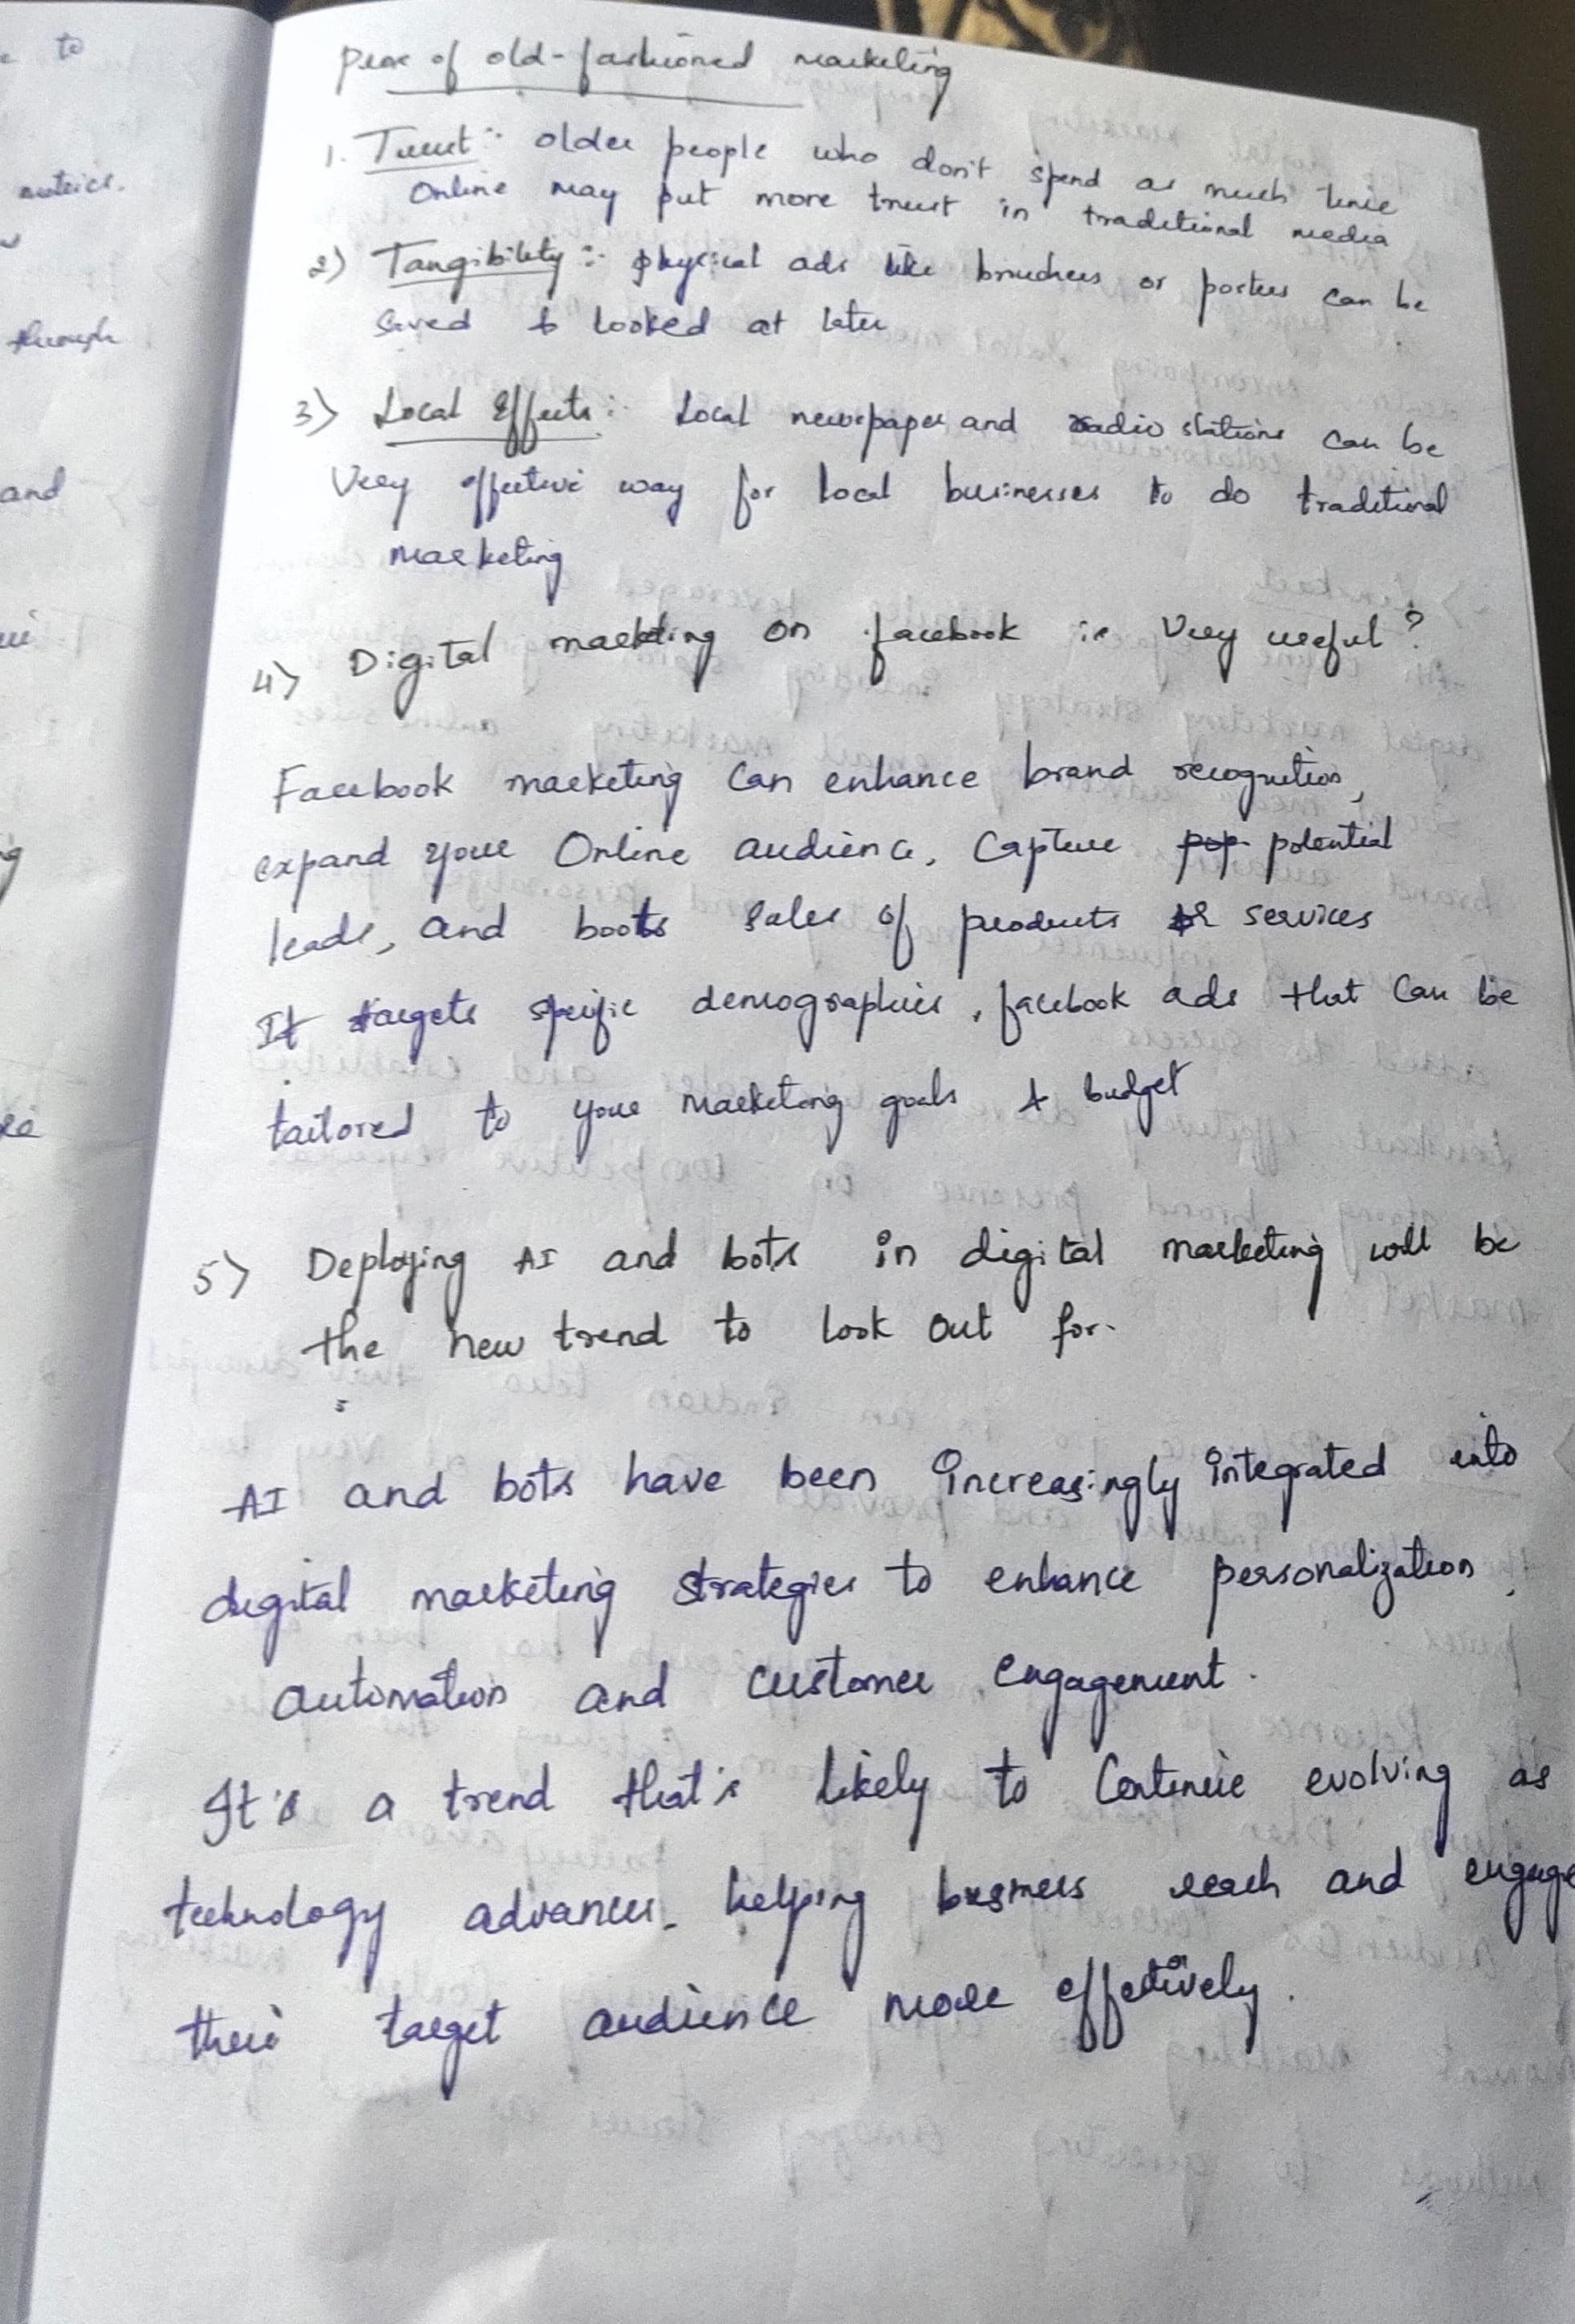 to
metrics.
through
and
Pros of old-fashioned marketing
1. Trust :- older people who don't spend as much time
Online may put more trust in traditional media
2) Tangibility :- physical ads like brouchers or posters can be
Saved & Looked at later
3) Local Effects :- Local newspaper and radio stations can be
Very effective way for local businesses to do traditional
marketing
4) Digital marketing on facebook is Very useful?
Facebook marketing Can enhance brand recognition,
expand your Online audience, Capture pop potential
leads, and boots Sales of products or services
It targets specific demographics, facebook ads that Can be
tailored to your marketing goals & budget
5) Deploying AI and bots in digital marketing will be
the new trend to look out for.
AI and bots have been increasingly integrated into
digital marketing strategies to enhance personalization,
automation and customer engagement.
It's a trend that's likely to Continue evolving as
technology advances, helping busness reach and engage
their target audience more effectively.